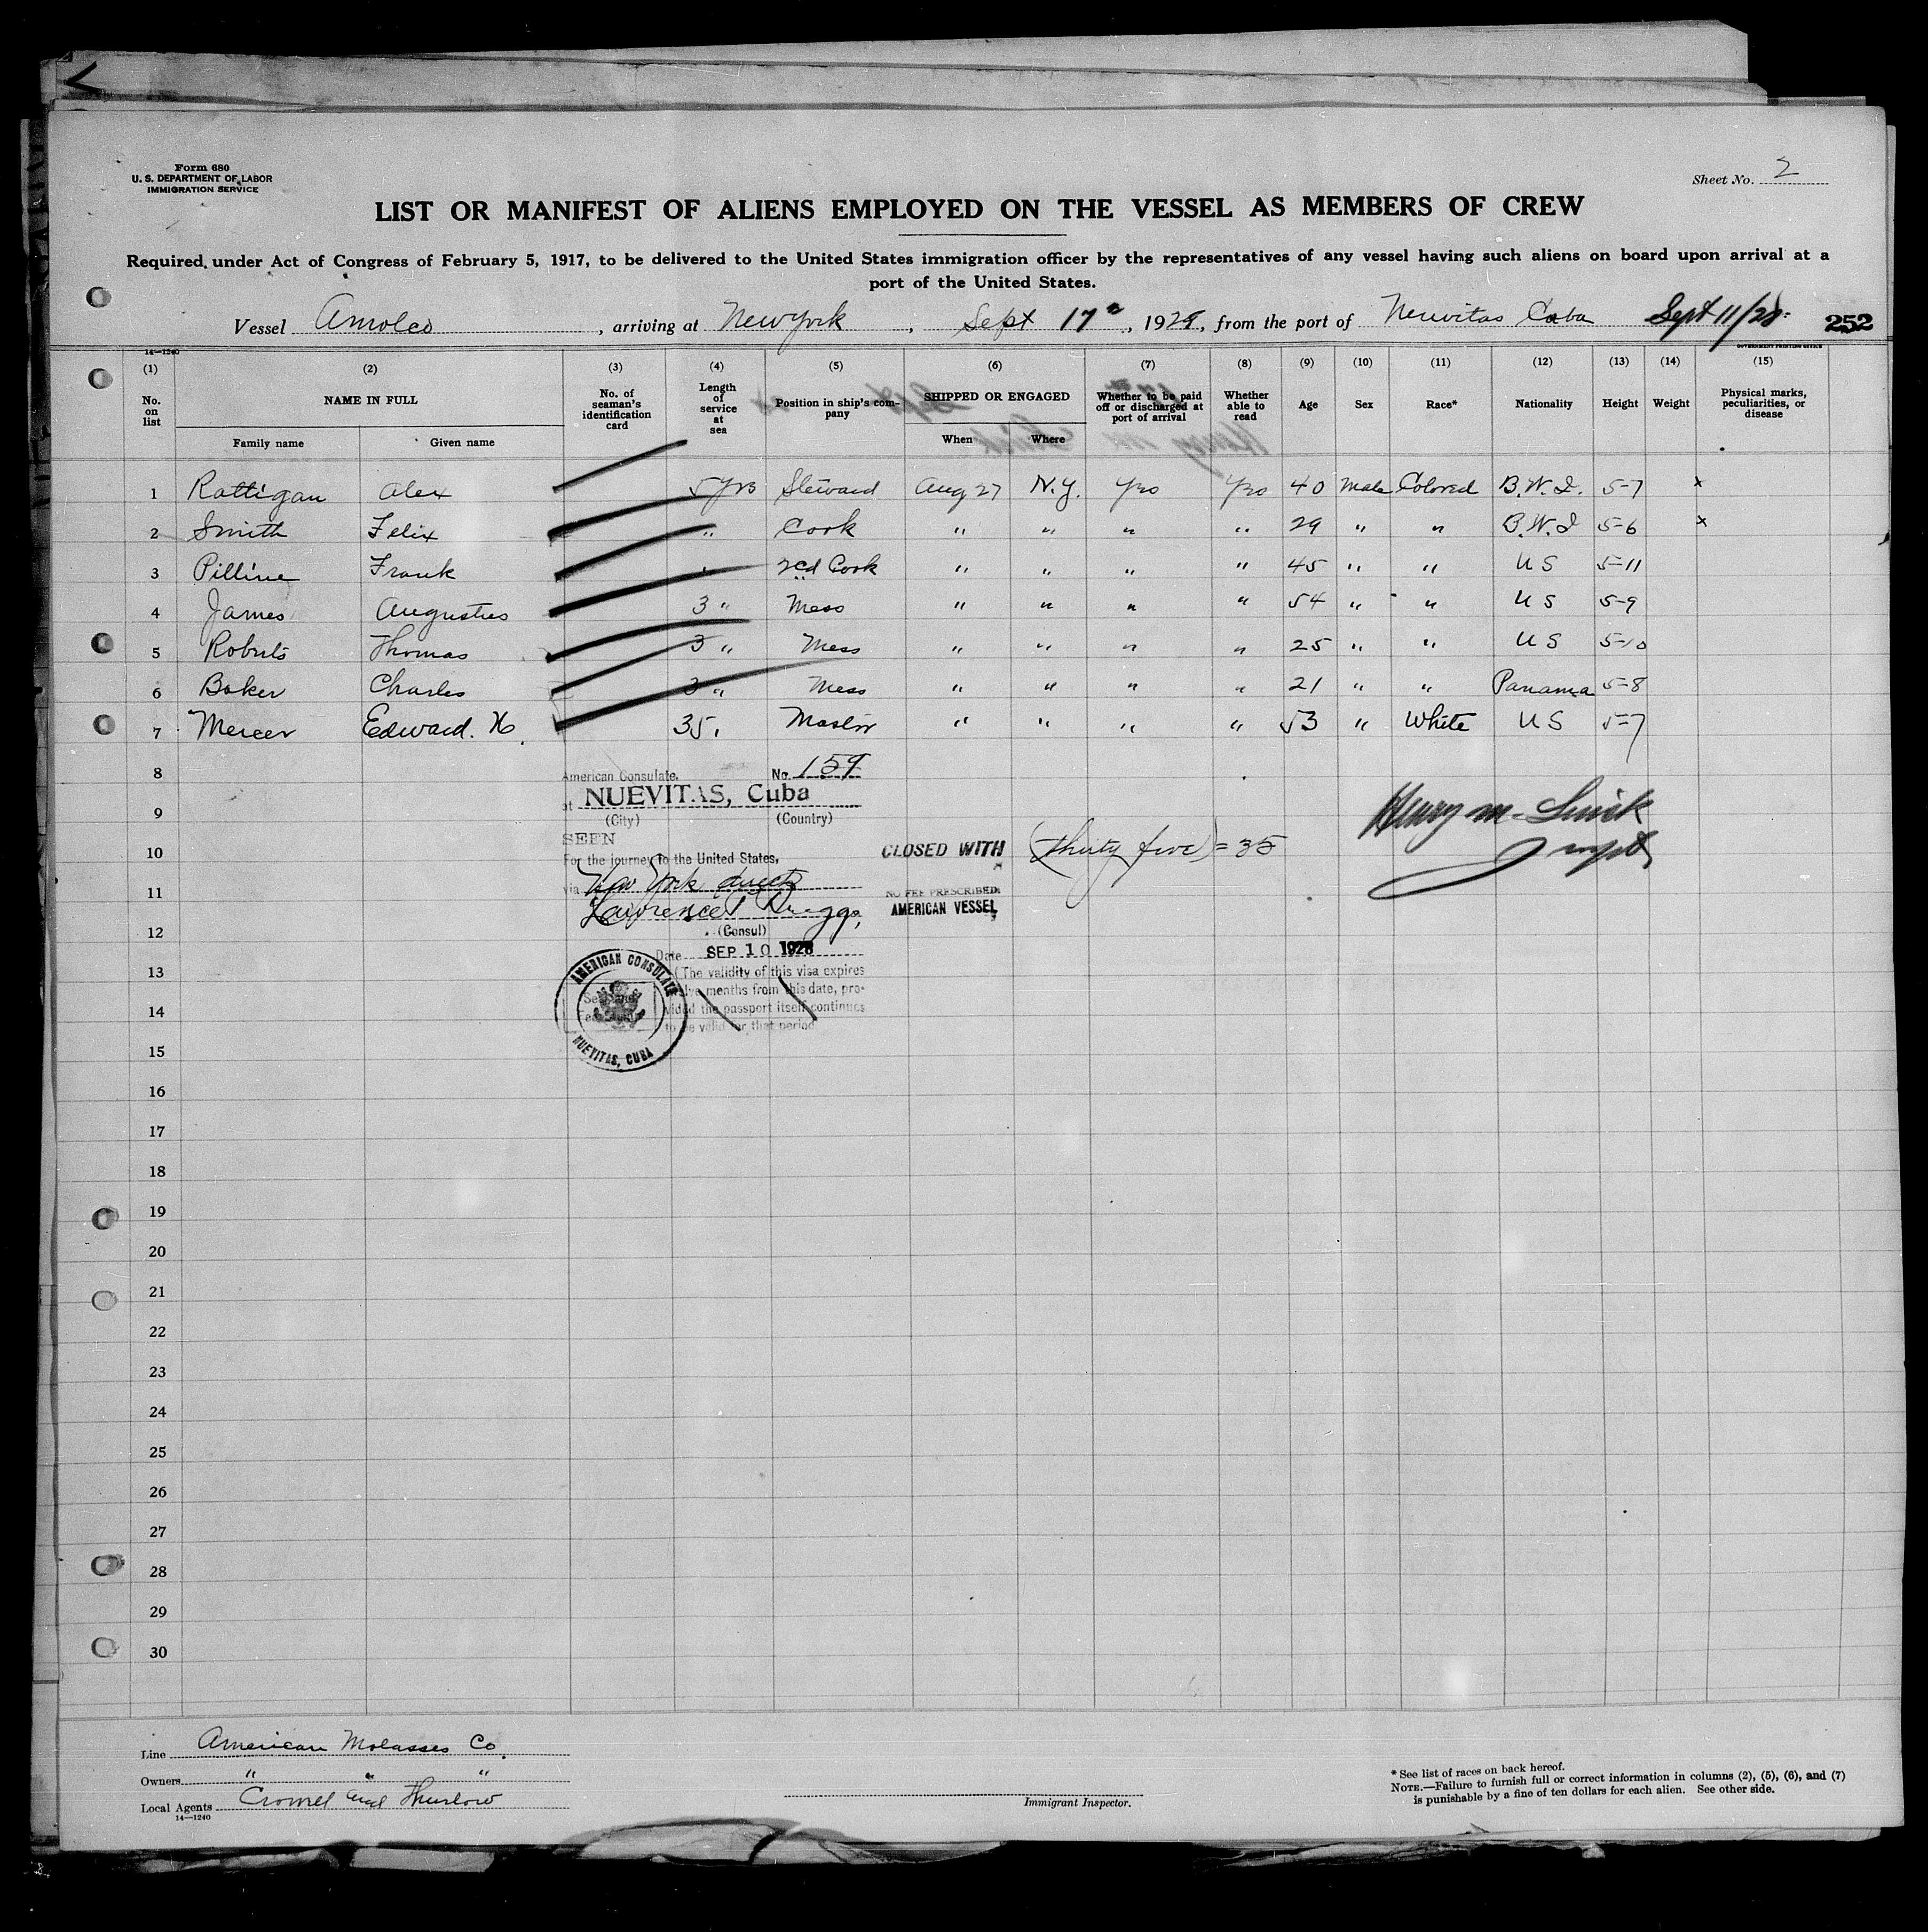 Form 680
U. S. DEPARTMENT OF LABOR
IMMIGRATION SERVICE
Sheet No. 2
LIST OR MANIFEST OF ALIENS EMPLOYED ON THE VESSEL AS MEMBERS OF CREW
Required under Act of Congress of February 5, 1917, to be delivered to the United States immigration officer by the representatives of any vessel having such aliens on board upon arrival at a
port of the United States.
Vessel Amolco, arriving at New York, Sept 17, 1928, from the port of Neuvitas Cuba Sept 11/28 252
14—1240 GOVERNMENT PRINTING OFFICE
(1) (2) (3) (4) (5) (6) (7) (8) (9) (10) (11) (12) (13) (14) (15)
No. on list NAME IN FULL No. of seaman's identification card Length of service at sea Position in ship's company SHIPPED OR ENGAGED Whether to be paid off or discharged at port of arrival Whether able to read Age Sex Race* Nationality Height Weight Physical marks, peculiarities, or disease
Family name Given name When Where
1 Rattigan Alex 5 yrs Steward Aug 27 N.Y. Yes Yes 40 Male Colored B.W.I. 5-7 x
2 Smith Felix " Cook " " " " 29 " " B.W.I 5-6 x
3 Pilline Frank " 2cd Cook " " " " 45 " " US 5-11
4 James Augustus 3 " Mess " " " " 54 " " US 5-9
5 Roberts Thomas 3 " Mess " " " " 25 " " US 5-10
6 Baker Charles 3 " Mess " " " " 21 " " Panama 5-8
7 Mercer Edward. H. 35 " Master " " " " 53 " White US 5-7
8
American Consulate, No. 159
at NUEVITAS, Cuba
(City) (Country)
9
SEEN
10
For the journey to the United States,
CLOSED WITH (thirty five) = 35
Henry M.
via New York direct
11
NO FEE PRESCRIBED.
AMERICAN VESSEL
Lawrence
(Consul)
12
Date SEP 10 1928
(The validity of this visa expires
twelve months from this date, pro-
vided the passport itself continues
to be valid for that period
AMERICAN CONSULATE
NUEVITAS, CUBA
13
14
15
16
17
18
19
20
21
22
23
24
25
26
27
28
29
30
Line American Molasses Co.
Owners " " "
Local Agents Cromel and Thurlow
14—1240
Immigrant Inspector.
* See list of races on back hereof.
NOTE.—Failure to furnish full or correct information in columns (2), (5), (6), and (7)
is punishable by a fine of ten dollars for each alien. See other side.